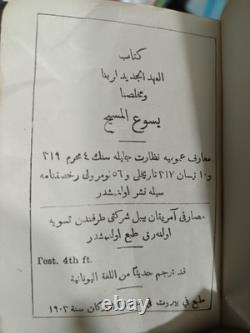 كتاب
العهد الجديد لربنا
ومخلصنا
يسوع المسيح
معارف عموميه نظارت جليله سنك ٤ محرم ٣١٩
و ١٠ نيسان ٣١٧ تاريخلى و ٥٦ نومرولى رخصتنامه
سيله نشر اولنمشدر
مصارفى آمريقان بيبل شركتى طرفندن تسويه
اولنه رق طبع اولنمشدر
Test. 4th ft.
قد ترجم حديثًا من اللغة اليونانية
طبع في بيروت في سنة ١٩٠٣
ebay